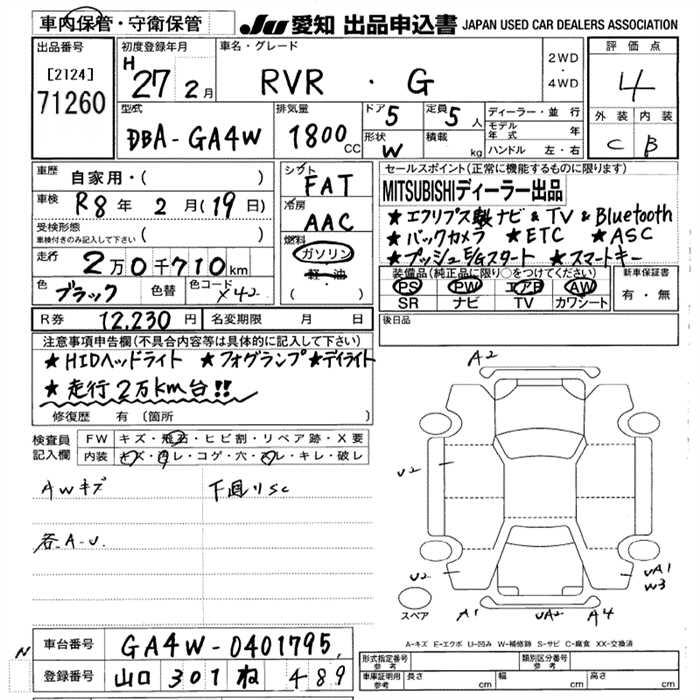 車内保管・守衛保管
JU 愛知 出品申込書 JAPAN USED CAR DEALERS ASSOCIATION
出品番号
[2124]
71260
初度登録年月
H 27 2月
車名・グレード
RVR ・ G
2WD
・
4WD
評価点
4
外装 内装
C B
型式
DBA-GA4W
排気量
1800 CC
ドア 5
形状 W
定員 5人
積載 kg
ディーラー・並行
モデル年式 年
ハンドル 左・右
車歴 自家用・( )
車検 R8年 2月(19日)
受検形態
車検付きのみ記入して下さい ( )
走行 2万0千710km
色 ブラック 色替 色コード X42
シフト FAT
冷房 AAC
燃料
ガソリン
軽・油
( )
セールスポイント(正常に機能するものに限ります)
MITSUBISHIディーラー出品
★エクリプス製ナビ&TV&Bluetooth
★バックカメラ ★ETC ★ASC
★プッシュE/Gスタート ★スマートキー
装備品(純正品に限り○をつけてください)
PS PW エアB AW
SR ナビ TV カワシート
新車保証書
有・無
R券 12,230円 名変期限 月 日
後日品
注意事項申告欄(不具合内容等は具体的に記入して下さい)
★HIDヘッドライト ★フォグランプ★デイライト
★走行2万km台!!
修復歴 有(箇所 )
検査員記入欄
FW キズ・飛石・ヒビ割・リペア跡・X要
内装 キズ・汚レ・コゲ・穴・スレ・キレ・破レ
AWキズ 下廻りSC
各A-U.
A2
U2
U2
A1
UA2
A4
UA1
W3
スペア
A-キズ E-エクボ U-凹み W-補修跡 S-サビ C-腐食 XX-交換済
N
車台番号 GA4W-0401795
登録番号 山口 301 ね 489
形式指定番号 参考
類別区分番号 参考
車庫証明用 参考 長さ cm 幅 cm 高さ cm